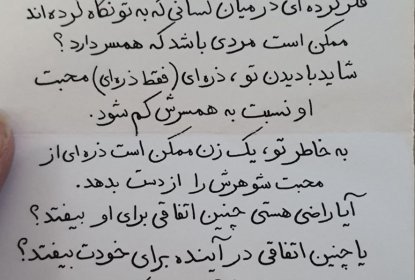 فکر کرده ای در میان کسانی که به تو نگاه کرده اند
ممکن است مردی باشد که همسر دارد؟
شاید با دیدن تو، ذره ای (فقط ذره ای) محبت
او نسبت به همسرش کم شود.
به خاطر تو، یک زن ممکن است ذره ای از
محبت شوهرش را از دست بدهد.
آیا راضی هستی چنین اتفاقی برای او بیفتد؟
یا چنین اتفاقی در آینده برای خودت بیفتد؟